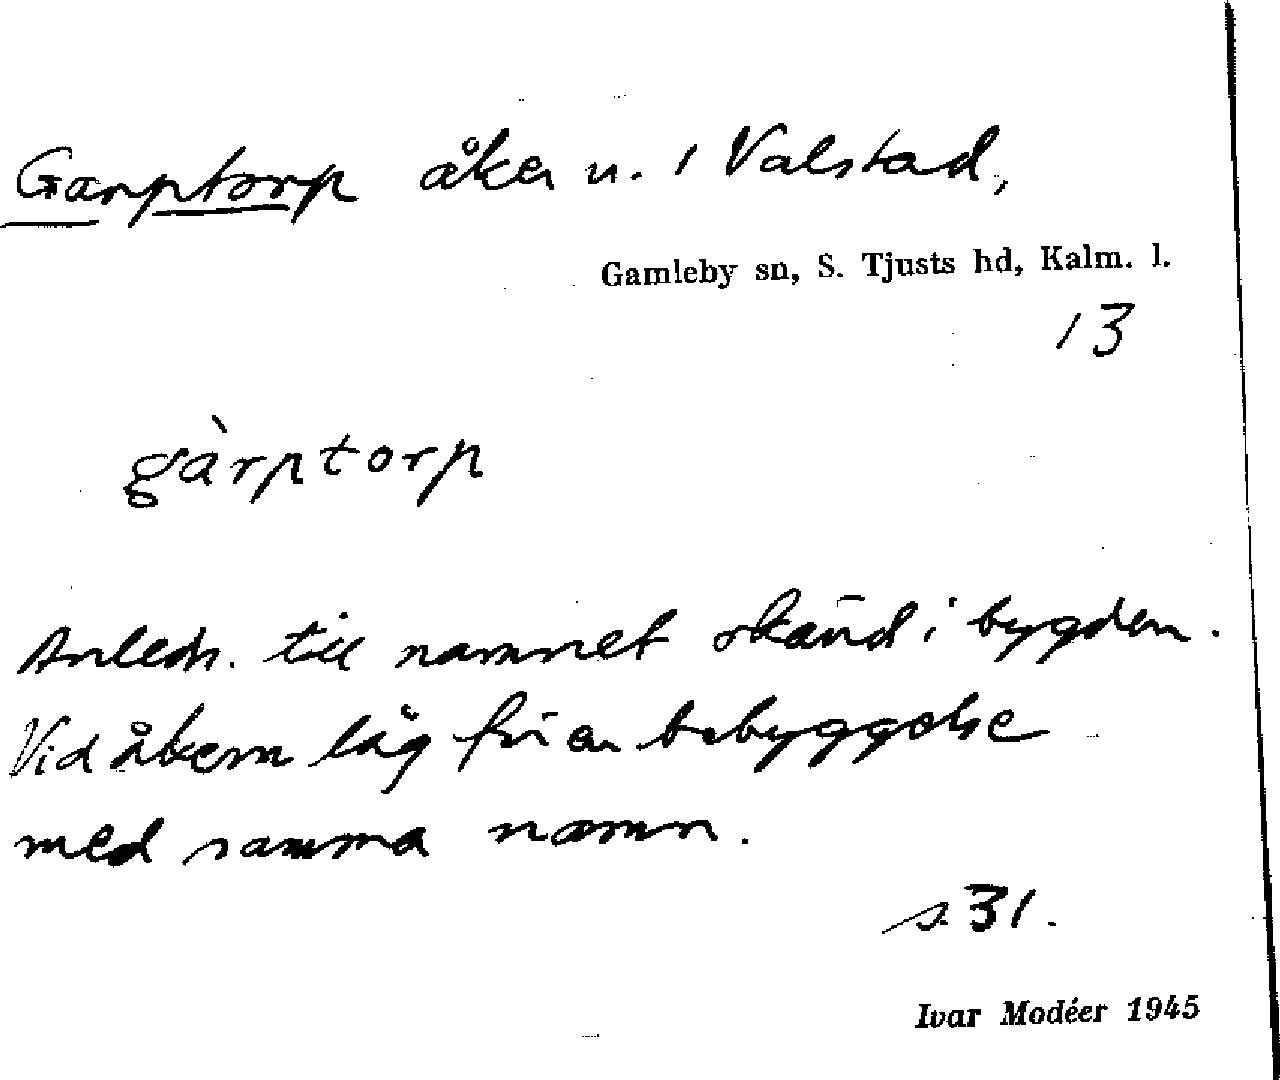 Garptorp åker u. 1 Valstad,
Gamleby sn, S. Tjusts hd, Kalm. l.
13
gàrptorp
Anledn. till namnet okänd i bygden.
Vid åkern låg förr en bebyggelse
med samma namn.
s. 31.
Ivar Modéer 1945